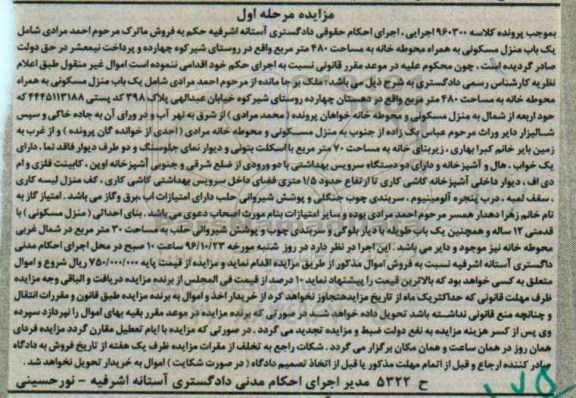 مزایده مرحله اول
بموجب پرونده کلاسه ۹۶۰۳۰۰ اجرایی ، اجرای احکام حقوقی دادگستری آستانه اشرفیه حکم به فروش ماترک مرحوم احمد مرادی شامل
یک باب منزل مسکونی به همراه محوطه خانه به مساحت ۴۸۰ متر مربع واقع در روستای شیرکوه چهارده و پرداخت نیمعشر در حق دولت
صادر گردیده است . چون محکوم علیه در موعد مقرر قانونی نسبت به اجرای حکم خود اقدامی ننموده است اموال غیر منقول طبق اعلام
نظریه کارشناس رسمی دادگستری به شرح ذیل می باشد : ملک بر جا مانده از مرحوم احمد مرادی شامل یک باب منزل مسکونی به همراه
محوطه خانه به مساحت ۴۸۰ متر مربع واقع در دهستان چهارده روستای شیرکوه خیابان عبدالهی پلاک ۳۹۸ کد پستی ۴۴۴۵۱۱۳۱۸۸ که
حدود اربعه از شمال به منزل مسکونی و محوطه خانه خواهان پرونده ( محمد مرادی ) از شرق به نهر آب و در ورای آن به جاده خاکی و سپس
شالیزار دایر وراث مرحوم عباس یک زاده از جنوب به منزل مسکونی و محوطه خانه مرادی ( احدی از خوانده گان پرونده ) و از غرب به
زمین بایر خانم کبرا بهاری ، زیربنای خانه به مساحت ۷۰ متر مربع با اسکلت بتونی و دیوار نمای جلوسنگ و دو طرف دیوار فاقد نما ، دارای
یک خواب ، هال و آشپزخانه و دارای دو دستگاه سرویس بهداشتی با دو ورودی از ضلع شرقی و جنوبی آشپزخانه اوپن ، کابینت فلزی و ام
دی اف ، دیوار داخلی آشپزخانه کاشی کاری تا ارتفاع حدود ۱/۵ متری فضای داخل سرویس بهداشتی کاشی کاری ، کف منزل لیسه کاری
، سقف لمبه ، درب پنجره آلومینیوم ، سربندی چوب جنگلی و پوشش شیروانی حلب دارای امتیازات آب ،برق وگاز می باشد . امتیاز گاز به
نام خانم زهرا دهدار همسر مرحوم احمد مرادی بوده و سایر امتیازات بنام مورث اصحاب دعوی می باشد . بنای احداثی ( منزل مسکونی ) با
قدمتی ۱۲ ساله و همچنین یک باب طویله با دیوار بلوکی و سربندی چوب و پوشش شیروانی حلب به مساحت ۳۰ متر مربع در شمال غربی
محوطه خانه نیز موجود و دایر می باشد . این اجرا در نظر دارد در روز شنبه مورخه ۹۶/۱۰/۲۳ ساعت ۱۰ صبح در محل اجرای احکام مدنی
دادگستری آستانه اشرفیه نسبت به فروش اموال مذکور از طریق مزایده اقدام نماید و مزایده از قیمت پایه ۷۵۰/۰۰۰/۰۰۰ ریال شروع و اموال
متعلق به کسی خواهد بود که بالاترین قیمت را پیشنهاد نماید . ۱۰ درصد از قیمت فی المجلس از برنده مزایده دریافت و الباقی وجه مزایده
ظرف مهلت قانونی که حداکثریک ماه از تاریخ مزایده متجاوز نخواهد کرد از خریدار اخذ و اموال به برنده مزایده طبق قانون و مقررات انتقال
و چنانچه منع قانونی نداشته باشد تحویل داده خواهد شد در صورتی که برنده مزایده در موعد مقرر بقیه بهای اموال را نپردازد سپرده
وی پس از کسر هزینه مزایده به نفع دولت ضبط و مزایده تجدید می گردد . در صورتی که مزایده با ایام تعطیل مقارن گردد مزایده فردای
همان روز در همان ساعت و همان مکان برگزار می گردد . شکات راجع به تخلف از مقرات مزایده ظرف یک هفته از تاریخ فروش به دادگاه
صادر کننده ارجاع و قبل از اتمام مهلت مذکور یا قبل از اتخاذ تصمیم دادگاه ( در صورت شکایت ) اموال به خریدار تحویل نخواهد شد .
ح ۵۳۲۲ مدیر اجرای احکام مدنی دادگستری آستانه اشرفیه – نورحسینی